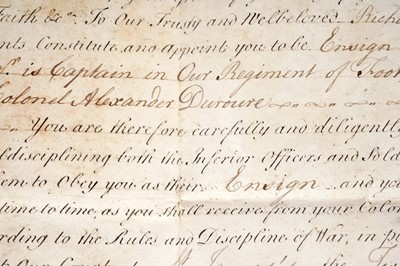 Faith &c. To Our Trusty and Welbeloved Rich
nts Constitute and appoint you to be Ensign
is Captain in Our Regiment of Foot
Colonel Alexander Duroure
You are therefore carefully and diligently
disciplining both the Inferior Officers and Sold
em to Obey you as their Ensign and yo
time to time, as you shall receive from your Colon
rding to the Rules and Discipline of War, in p